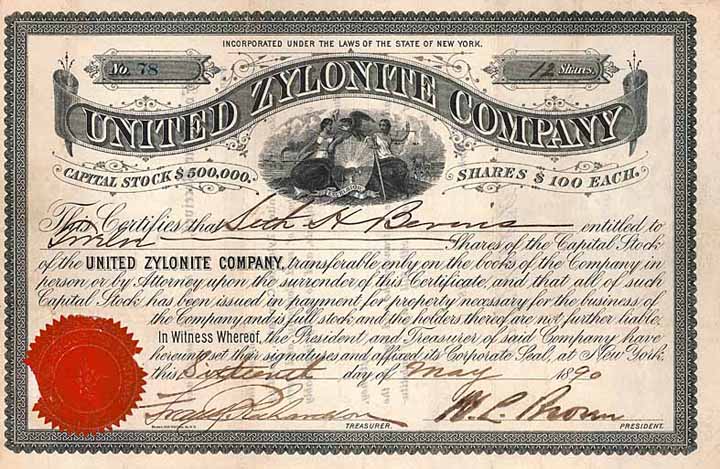 INCORPORATED UNDER THE LAWS OF THE STATE OF NEW YORK.
No. 78
12 Shares.
UNITED ZYLONITE COMPANY
CAPITAL STOCK $500,000.
SHARES $100 EACH.
EXCELSIOR
This Certifies that Seth H Bevins entitled to
Shares of the Capital Stock
of the UNITED ZYLONITE COMPANY, transferable only on the books of the Company in
person or by Attorney upon the surrender of this Certificate, and that all of such
Capital Stock has been issued in payment for property necessary for the business of
the Company and is full stock and the holders thereof are not further liable.
In Witness Whereof, the President and Treasurer of said Company have
hereunto set their signatures and affixed its Corporate Seal, at New York.
this Sixteenth day of May 1890
Richardson
W. L. Brown
TREASURER.
PRESIDENT.